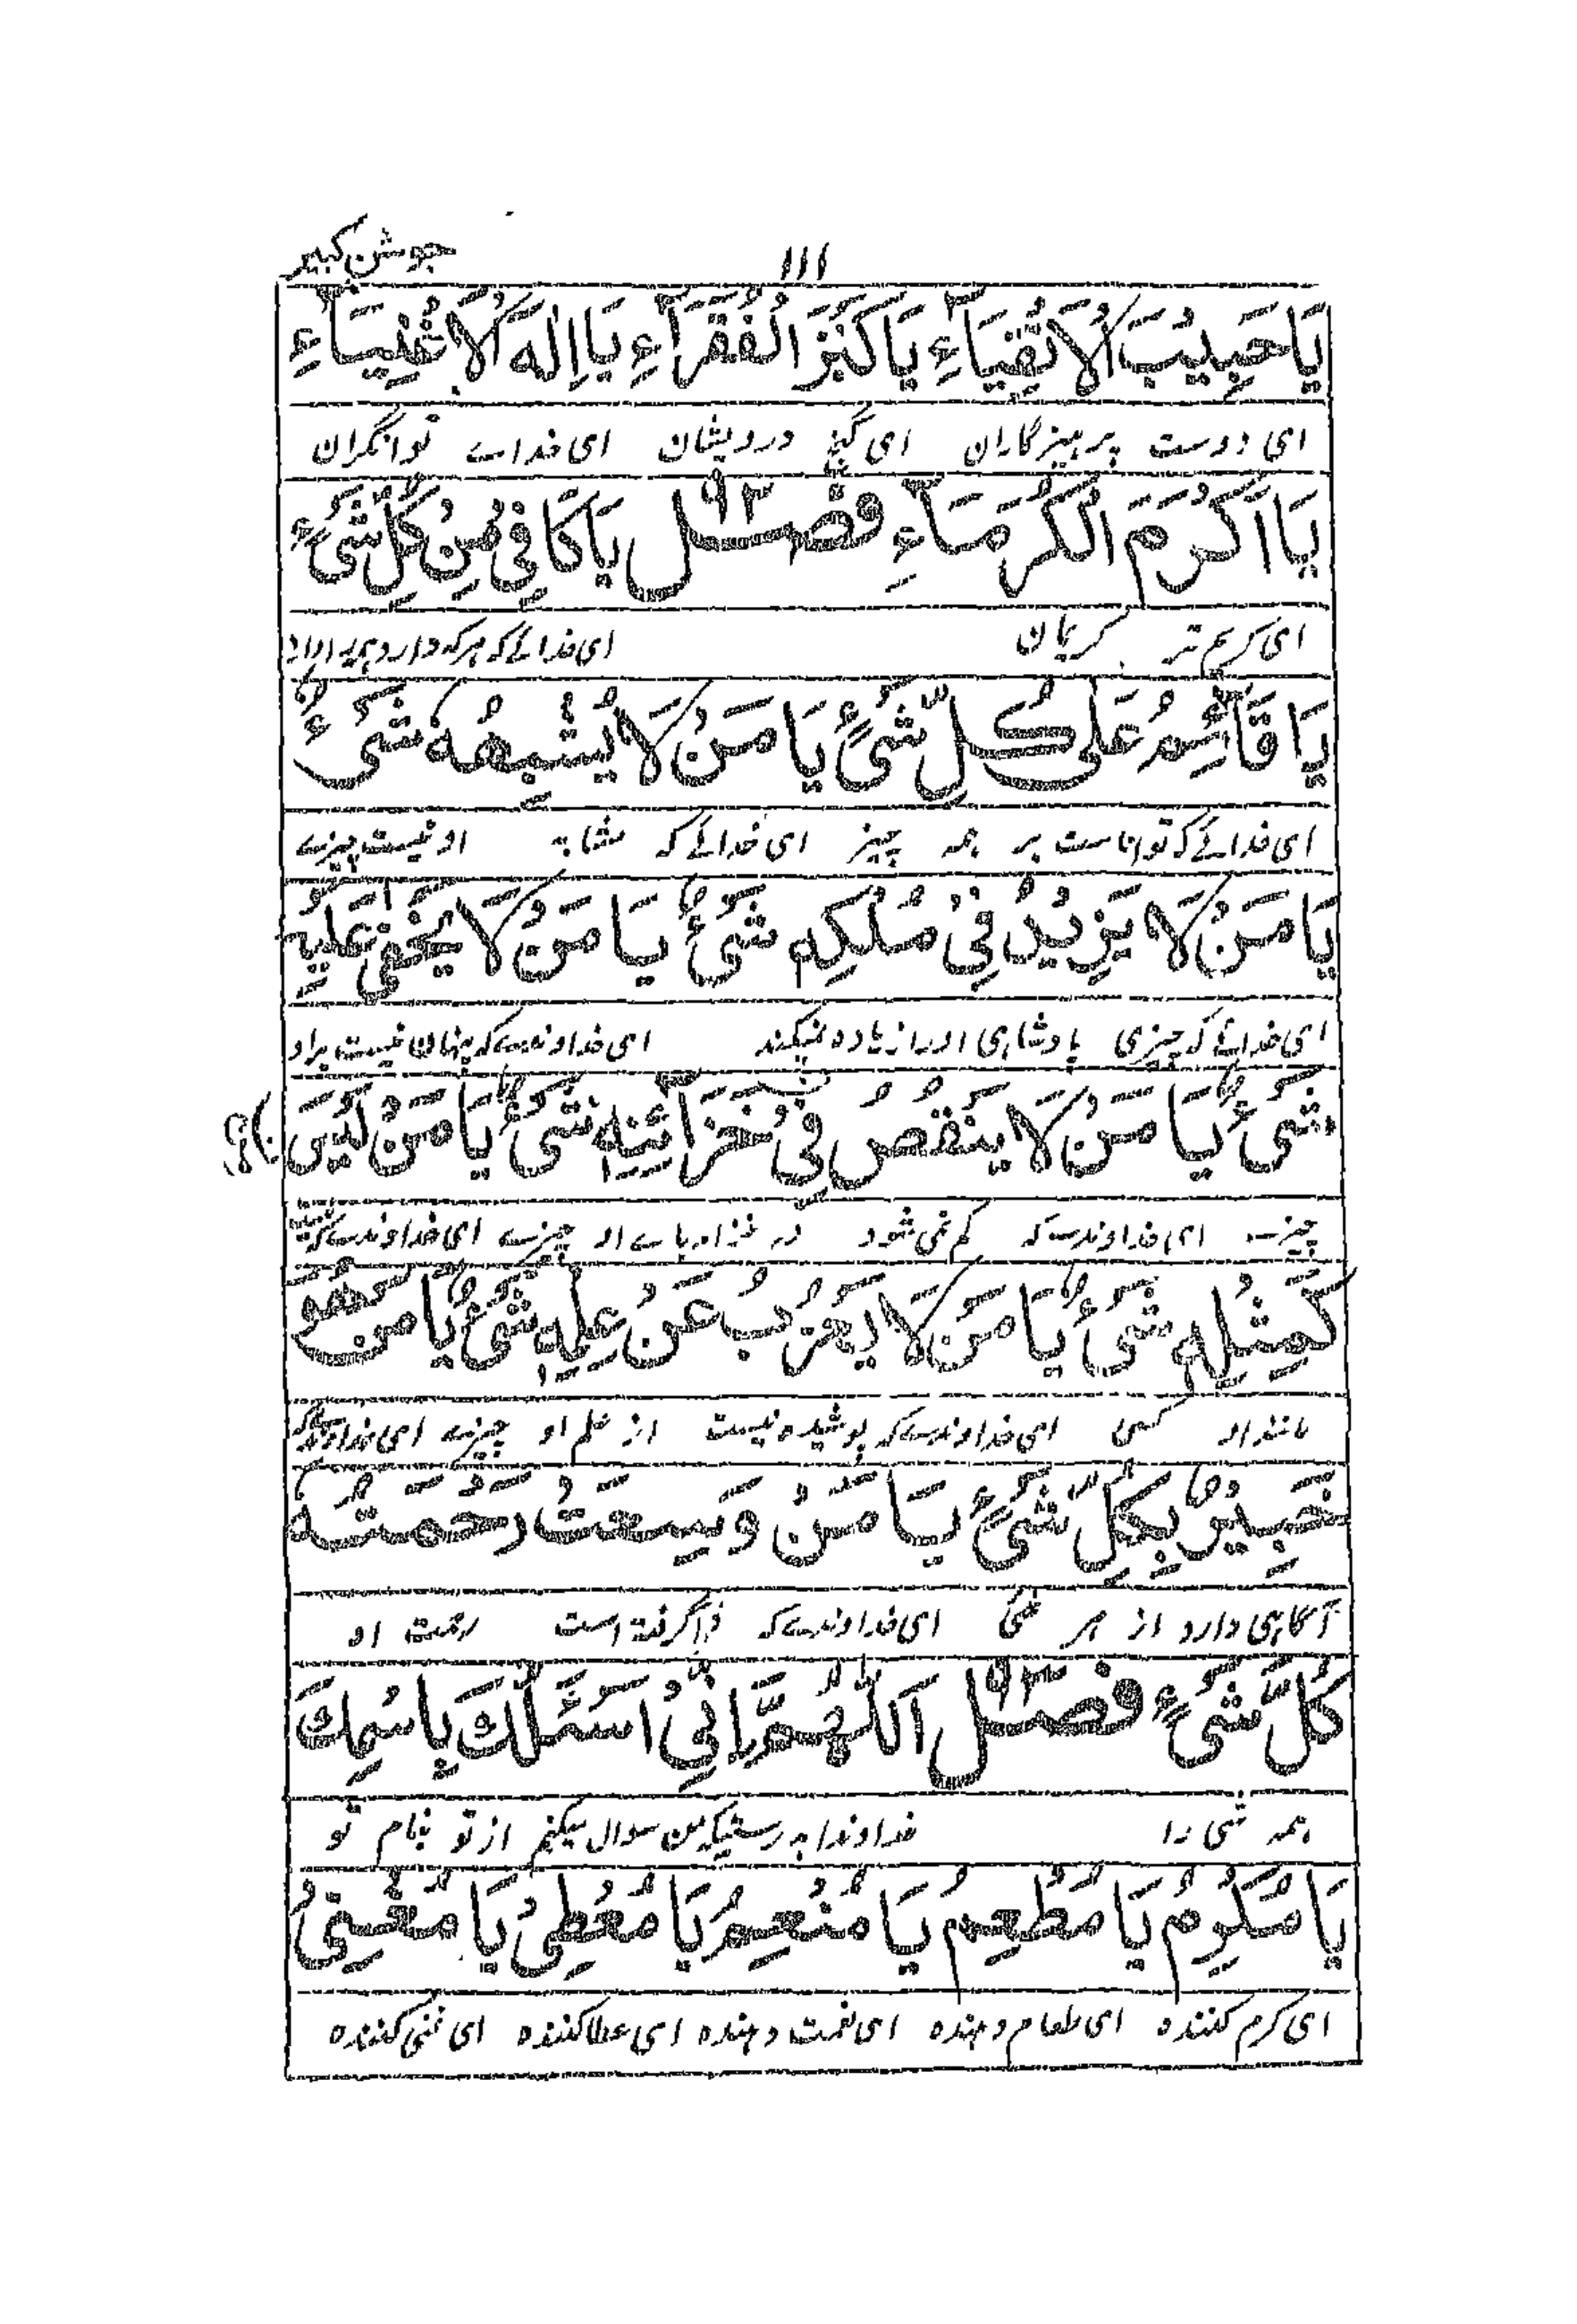 ۱۱۱
جوشن کبیر
يَا حَبِيْبَ الْاَتْقِيَآءِ يَا كَنْزَ الْفُقَرَآءِ يَا اِلٰهَ الْاَغْنِيَآءِ
ای دوست پرهیزگاران ای گنج درویشان ای خداے توانگران
يَا اَكْرَمَ الْكُرَمَآءِ فصل ۹۲ يَا كَافِيْ مِنْ كُلِّ شَيْءٍ
ای کریم تر کریمان ای خدائے که هرکه دارد
يَا قَآئِمُ عَلٰى كُلِّ شَيْءٍ يَا مَنْ لَا يُشْبِهُهٗ شَيْءٌ
ای خدائے که تواناست بر همه چیز ای خدائے که مشابه او نیست چیزے
يَا مَنْ لَا يَزِيْدُ فِيْ مُلْكِهٖ شَيْءٌ يَا مَنْ لَا يَخْفٰى عَلَيْهِ
ای خدائے که چیزی پادشاهی او را زیاده نمیکند ای خداوندے که پنهان نیست براو
شَيْءٌ يَا مَنْ لَا يَنْقُصُ فِيْ خَزَآئِنِهٖ شَيْءٌ يَا مَنْ لَيْسَ
چیزے ای خداوندے که کم نمی شود در خزانه هاے او چیزے ای خداوندے که
كَمِثْلِهٖ شَيْءٌ يَا مَنْ لَا يَعْزُبُ عَنْ عِلْمِهٖ شَيْءٌ يَا مَنْ هُوَ
مانند او کسی ای خداوندے که پوشیده نیست از علم او چیزے ای خداوندے که
خَبِيْرٌ بِكُلِّ شَيْءٍ يَا مَنْ وَسِعَتْ رَحْمَتُهٗ
آگاهی دارد از هر شی ای خداوندے که فراگرفته است رحمت او
كُلَّ شَيْءٍ فصل ۹۳ اَللّٰهُمَّ اِنِّيْ اَسْئَلُكَ بِاسْمِكَ
همه شی را خداوندا بدرستیکه من سوال میکنم از تو بنام تو
يَا مُكْرِمُ يَا مُطْعِمُ يَا مُنْعِمُ يَا مُعْطِيْ يَا مُغْنِيْ
ای کرم کننده ای طعام دهنده ای نعمت دهنده ای عطاکننده ای غنی کننده